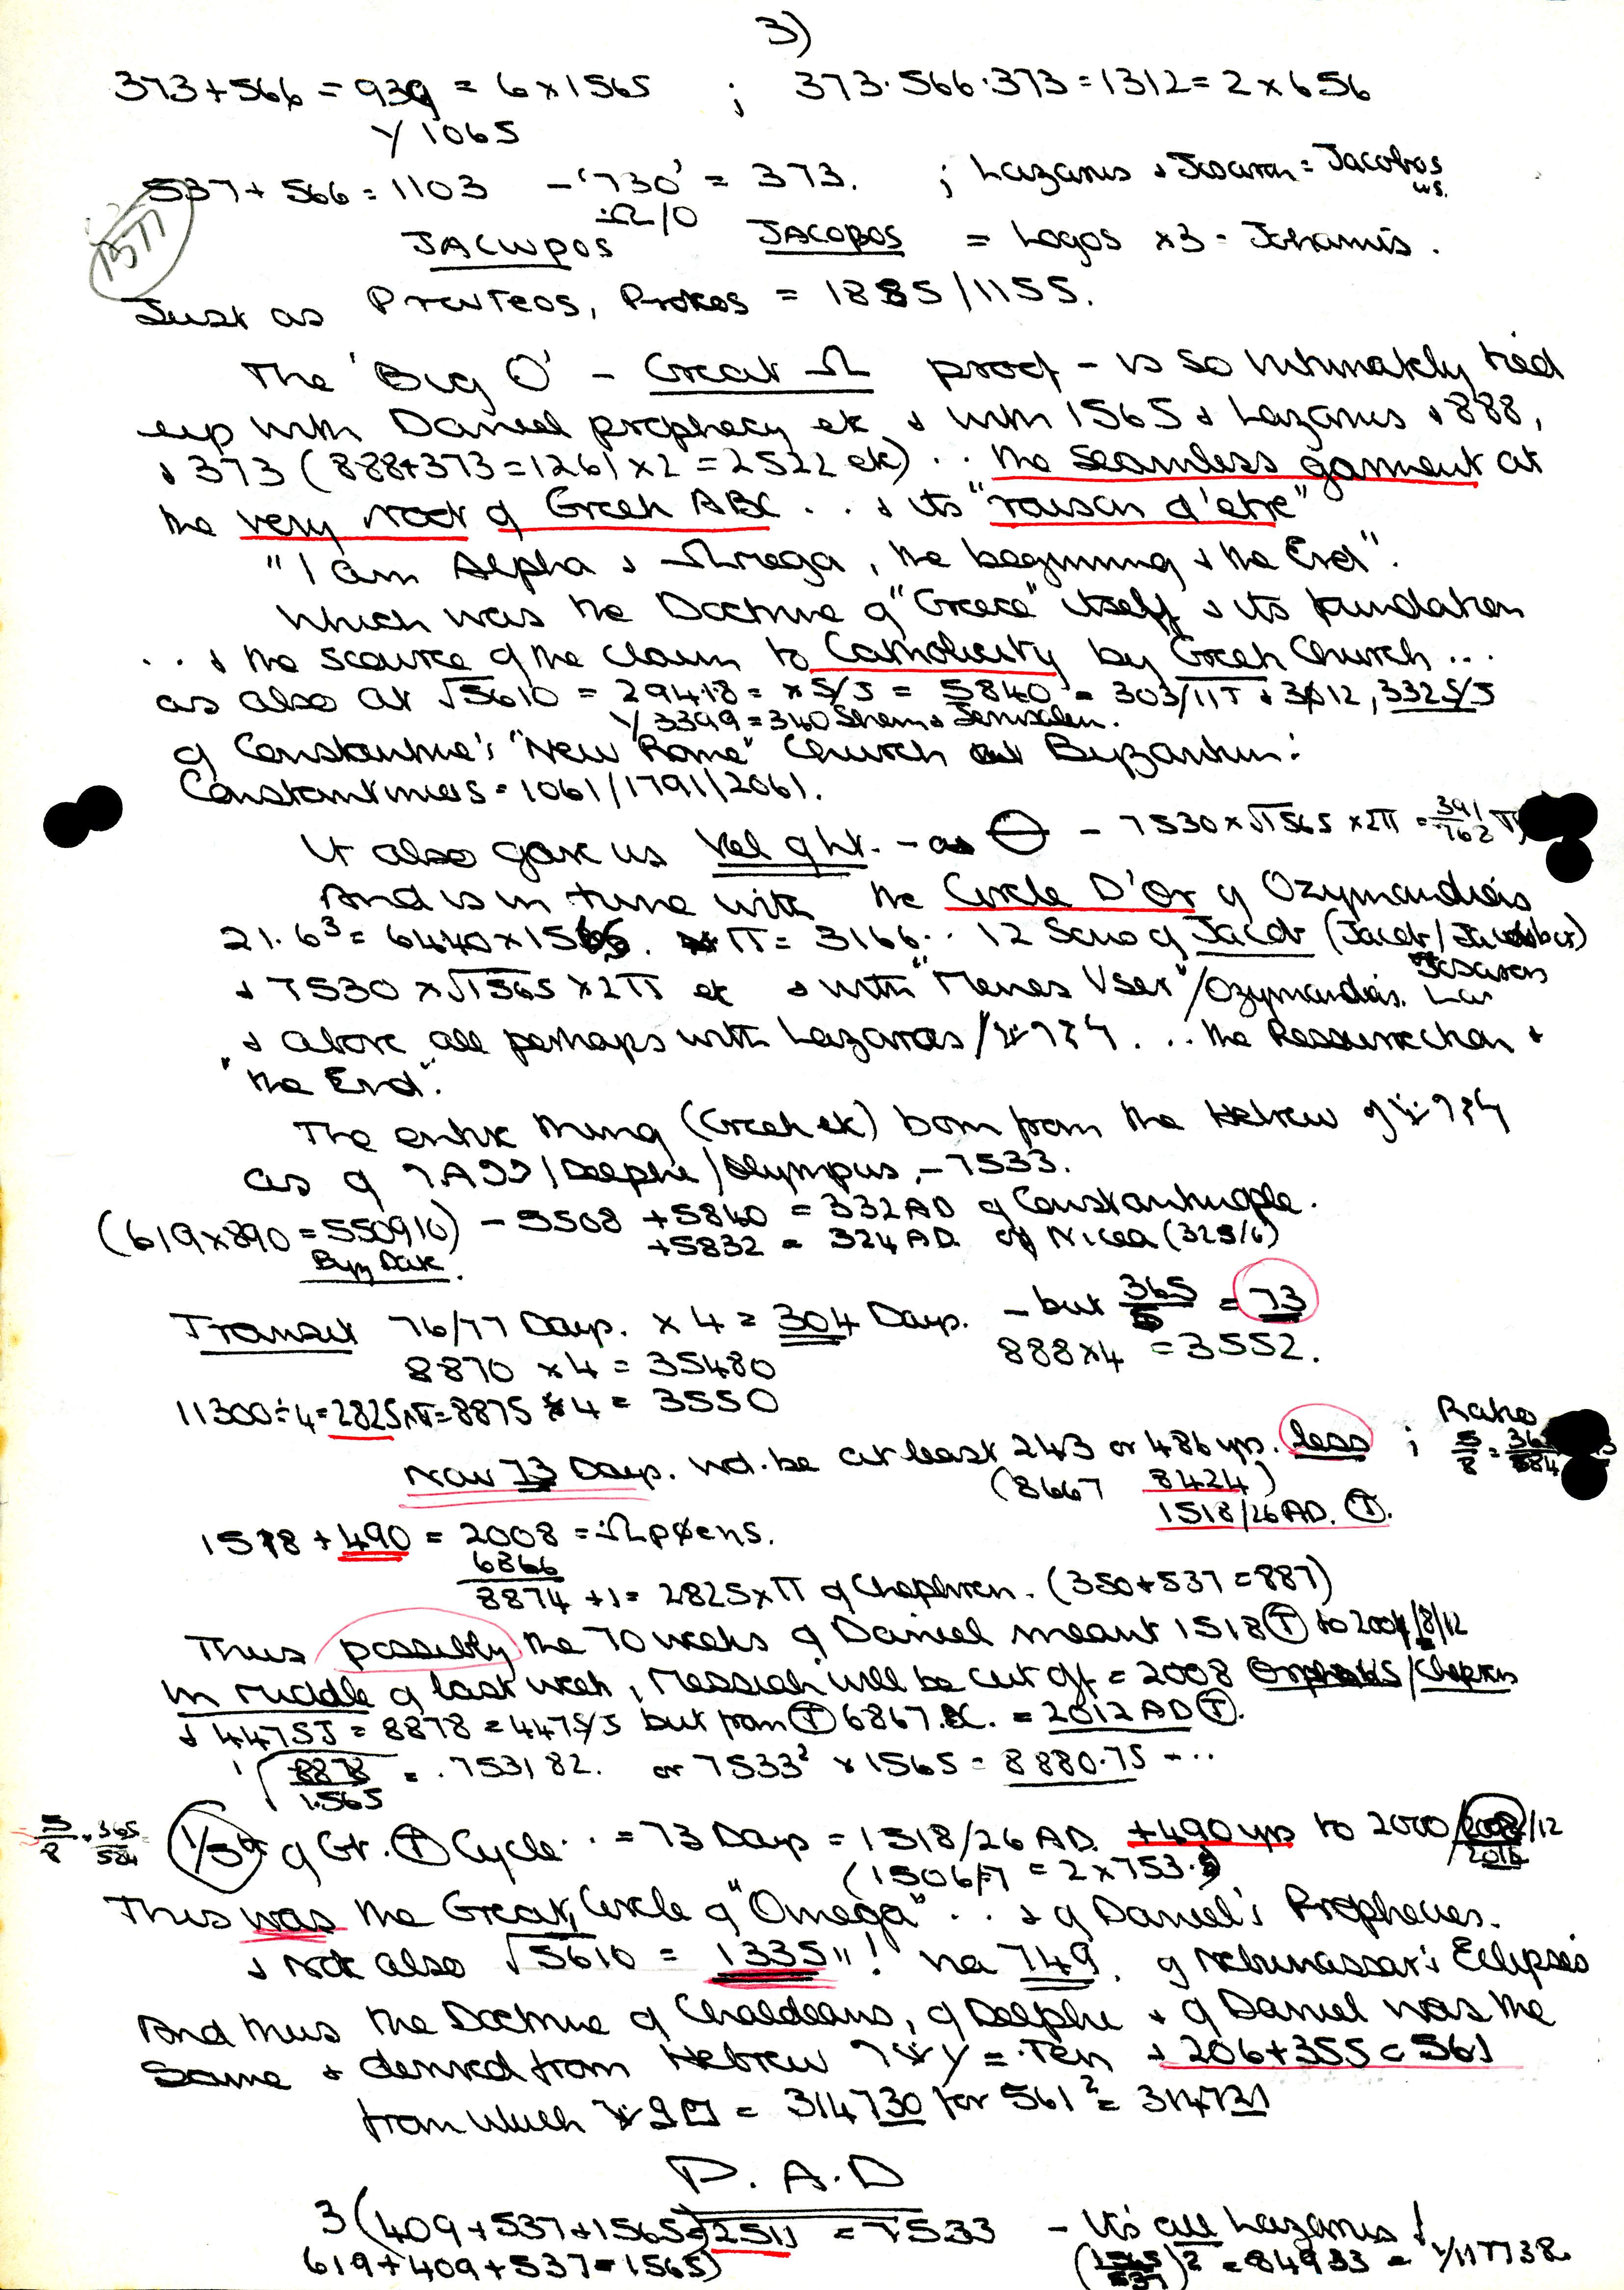 3)
373+566 = 939 = 6 x 1565 ; 373·566·373 = 1312 = 2 x 656
Y 1065
537 + 566 = 1103 - '730' = 373. ; Lazarus & = Jacobos
Ω/O
1577
JACWPOS JACOBOS = Logos x3 = Johannis.
Just as PrwTeos, = 1885/1155.
The 'Big O' - Great Ω proof - is so intimately tied
up with Daniel prophecy etc & with 1565 & Lazarus & 888,
& 373 (888+373 = 1261 x 2 = 2522 etc) .. the seamless garment at
the very root of Greek ABC ... & its "raison d'etre"
"I am Alpha & Ωmega, the beginning & the End".
Which was the Doctrine of "Greece" itself & its foundation
... & the source of the claim to Catholicity by Greek Church ...
as also at √5610 = 29418 = x S/J = 5840 = 303/11T & 3612, 332S/J
Y 3399 = 340 Shem & Jerusalem.
of Constantine's "New Rome" Church at Byzantium:
Constantinus = 1061/1791/2061.
It also gave us Vel of ht. - as Θ - 7530 x √1565 x 2π = 391/762 π
And is in tune with the Circle D'Or of Ozymandias
21.6³ = 6440 x 1565. π = 3166.. 12 Sons of Jacob (Jacob/
& 7530 x √1565 x 2π etc & with "Menes User"/Ozymandias.
& above all perhaps with Lazarus/ ... the Resurrection &
"the End".
The entire thing (Greek etc) born from the Hebrew of
as of /Delphi/Olympus, - 7533.
(619 x 890 = 550910) - 5508 + 5840 = 332 AD of Constantinople.
Byz Date. + 5832 = 324 AD. of Nicea (325/6)
Transit 76/77 Days. x 4 = 304 Days. - but 365/5 = 73
8870 x 4 = 35480 888 x 4 = 3552.
11300 ÷ 4 = 2825 x π = 8875 x 4 = 3550
Now 73 Days. wd. be at least 243 or 486 yrs. less ; Ratio 5/8 =
(8667 8424)
1518/26 AD. Ⓣ.
1518 + 490 = 2008 = Ωpφens.
6866
8874 + 1 = 2825 x π of Chephren. (350 + 537 = 887)
Thus possibly the 70 weeks of Daniel meant 1518 Ⓣ to 2004/8/12
In middle of last week, Messiah will be cut off = 2008
& 447SJ = 8878 = 447S/J but from Ⓣ 6867 BC. = 2012 AD Ⓣ.
√8878/1.565 = .753182. or 7533² x 1565 = 8880.75 - ...
5/8 = 365/584 1/5th of Gt. Ⓣ Cycle... = 73 Days = 1518/26 AD. + 490 yrs to 2000/2008/12
2016
(1506/7 = 2 x 753.
Thus was the Great Circle of "Omega"... & of Daniel's Prophecies.
& note also √5610 = 1335"! via 749. of Nebunassar's Eclipses
And thus the Doctrine of Chaldeans, of Delphi & of Daniel was the
same & derived from Hebrew = Ten & 206 + 355 = 561
from which = 314730 for 561² = 314721
P. A. D
3(409 + 537 + 1565 = 2511 = 7533 - It's all Lazarus!
619 + 409 + 537 = 1565) (1565/537)² = 84933 = 1/117738.